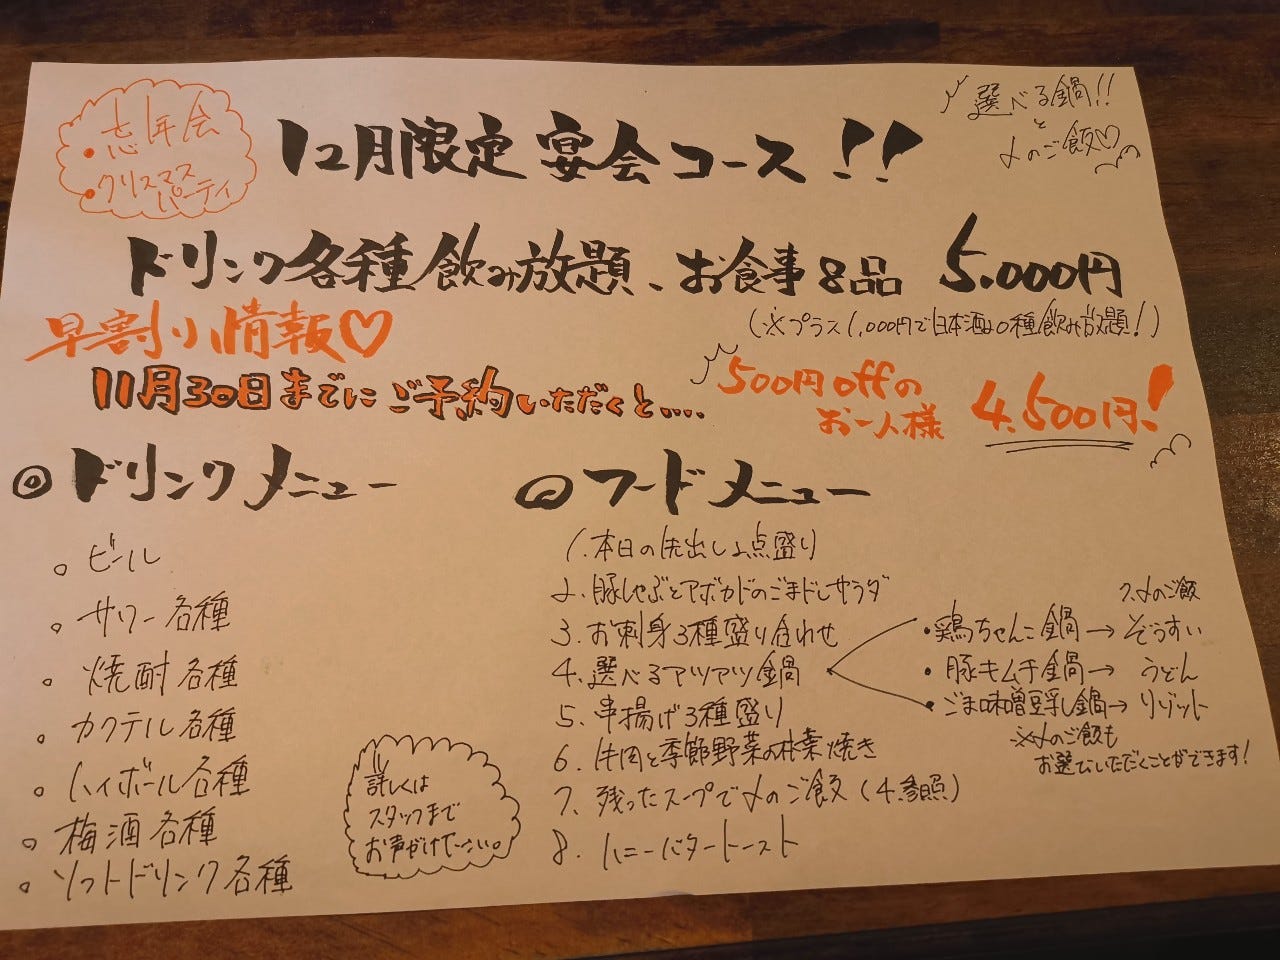 ・忘年会
・クリスマス
パーティ
12月限定宴会コース!!
選べる鍋!!
と
〆のご飯♡
ドリンク各種飲み放題、お食事8品 5,000円
(※プラス1,000円で日本酒10種飲み放題!)
早割り情報♡
11月30日までにご予約いただくと....
500円offの
お一人様 4,500円!
◎ドリンクメニュー
○ ビール
○ サワー各種
○ 焼酎各種
○ カクテル各種
○ ハイボール各種
○ 梅酒各種
○ ソフトドリンク各種
詳しくは
スタッフまで
お声がけ下さい。
◎フードメニュー
1. 本日の先出し2点盛り
2. 豚しゃぶとアボカドのごまドレサラダ
3. お刺身3種盛り合わせ
4. 選べるアツアツ鍋
5. 串揚げ3種盛り
6. 牛肉と季節野菜の朴葉焼き
7. 残ったスープで〆のご飯(4.参照)
8. ハニーバタートースト
7.〆のご飯
・鶏ちゃんこ鍋→ぞうすい
・豚キムチ鍋→うどん
・ごま味噌豆乳鍋→リゾット
※〆のご飯も
お選びいただくことができます!